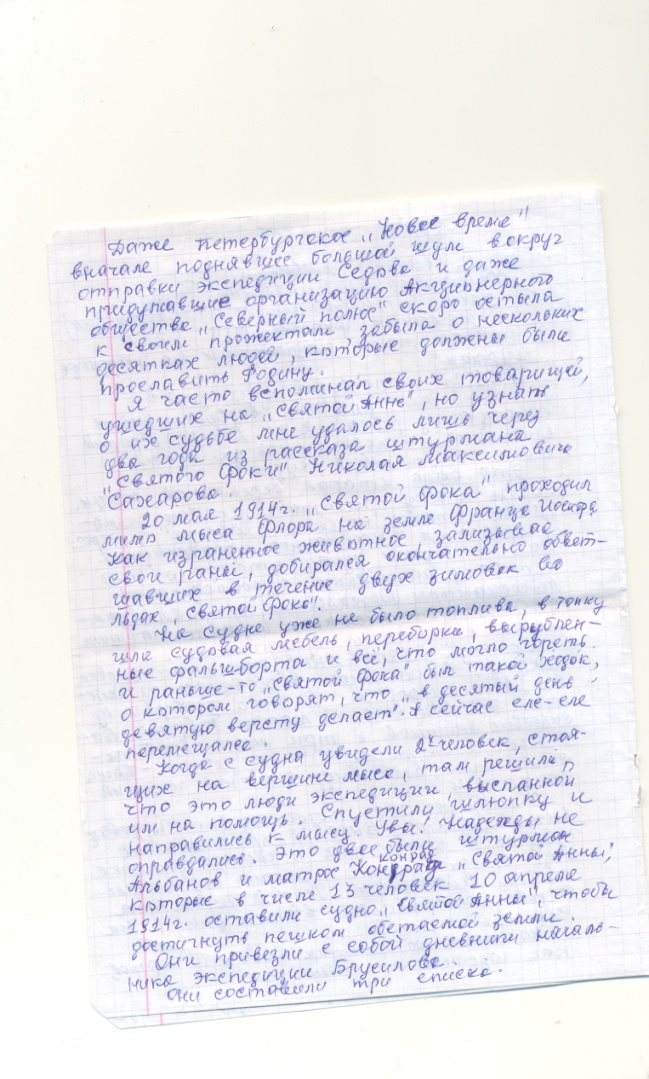 Даже петербургское „Новое время"
вначале поднявшее большой шум вокруг
отправки экспедиции Седова и даже
придумавшие организацию Акционерного
общества „Северный полюс" скоро остыла
к своим прожектам, забыла о нескольких
десятках людей, которые должны были
прославить Родину.
Я часто вспоминал своих товарищей,
ушедших на „Святой Анне", но узнать
о их судьбе мне удалось лишь через
два года из рассказа штурмана
"Святого Фоки" Николая Максимовича
Сахарова.
20 мая 1914г. „Святой Фока" проходил
мимо мыса Флора на земле Франца Иосифа
Как израненное животное, зализывая
свои раны, добирался окончательно обвет-
шавших в течение двух зимовок во
льдах „Святой Фока".
На судне уже не было топлива, в топку
шла судовая мебель, переборки, вырублен-
ные фальшборта и всё, что могло гореть.
И раньше-то „Святой Фока" был такой ходок,
о котором говорят, что „в десятый день
девятую версту делает". А сейчас еле-еле
перемещался.
Когда с судна увидели 2х человек, стоя-
щих на вершине мыса, там решили,
что это люди экспедиции, высланной
им на помощь. Спустили шлюпку и
направились к мысу. Увы! Надежды не
оправдались. Это двое были штурман
Альбанов и матрос Конрад „Святой Анны",
которые в числе 13 человек 10 апреля
1914г. оставили судно „Святой Анны", чтобы
достигнуть пешком обетаемой земли.
Они привезли с собой дневники началь-
ника экспедиции Брусилова.
Они составили три списка.